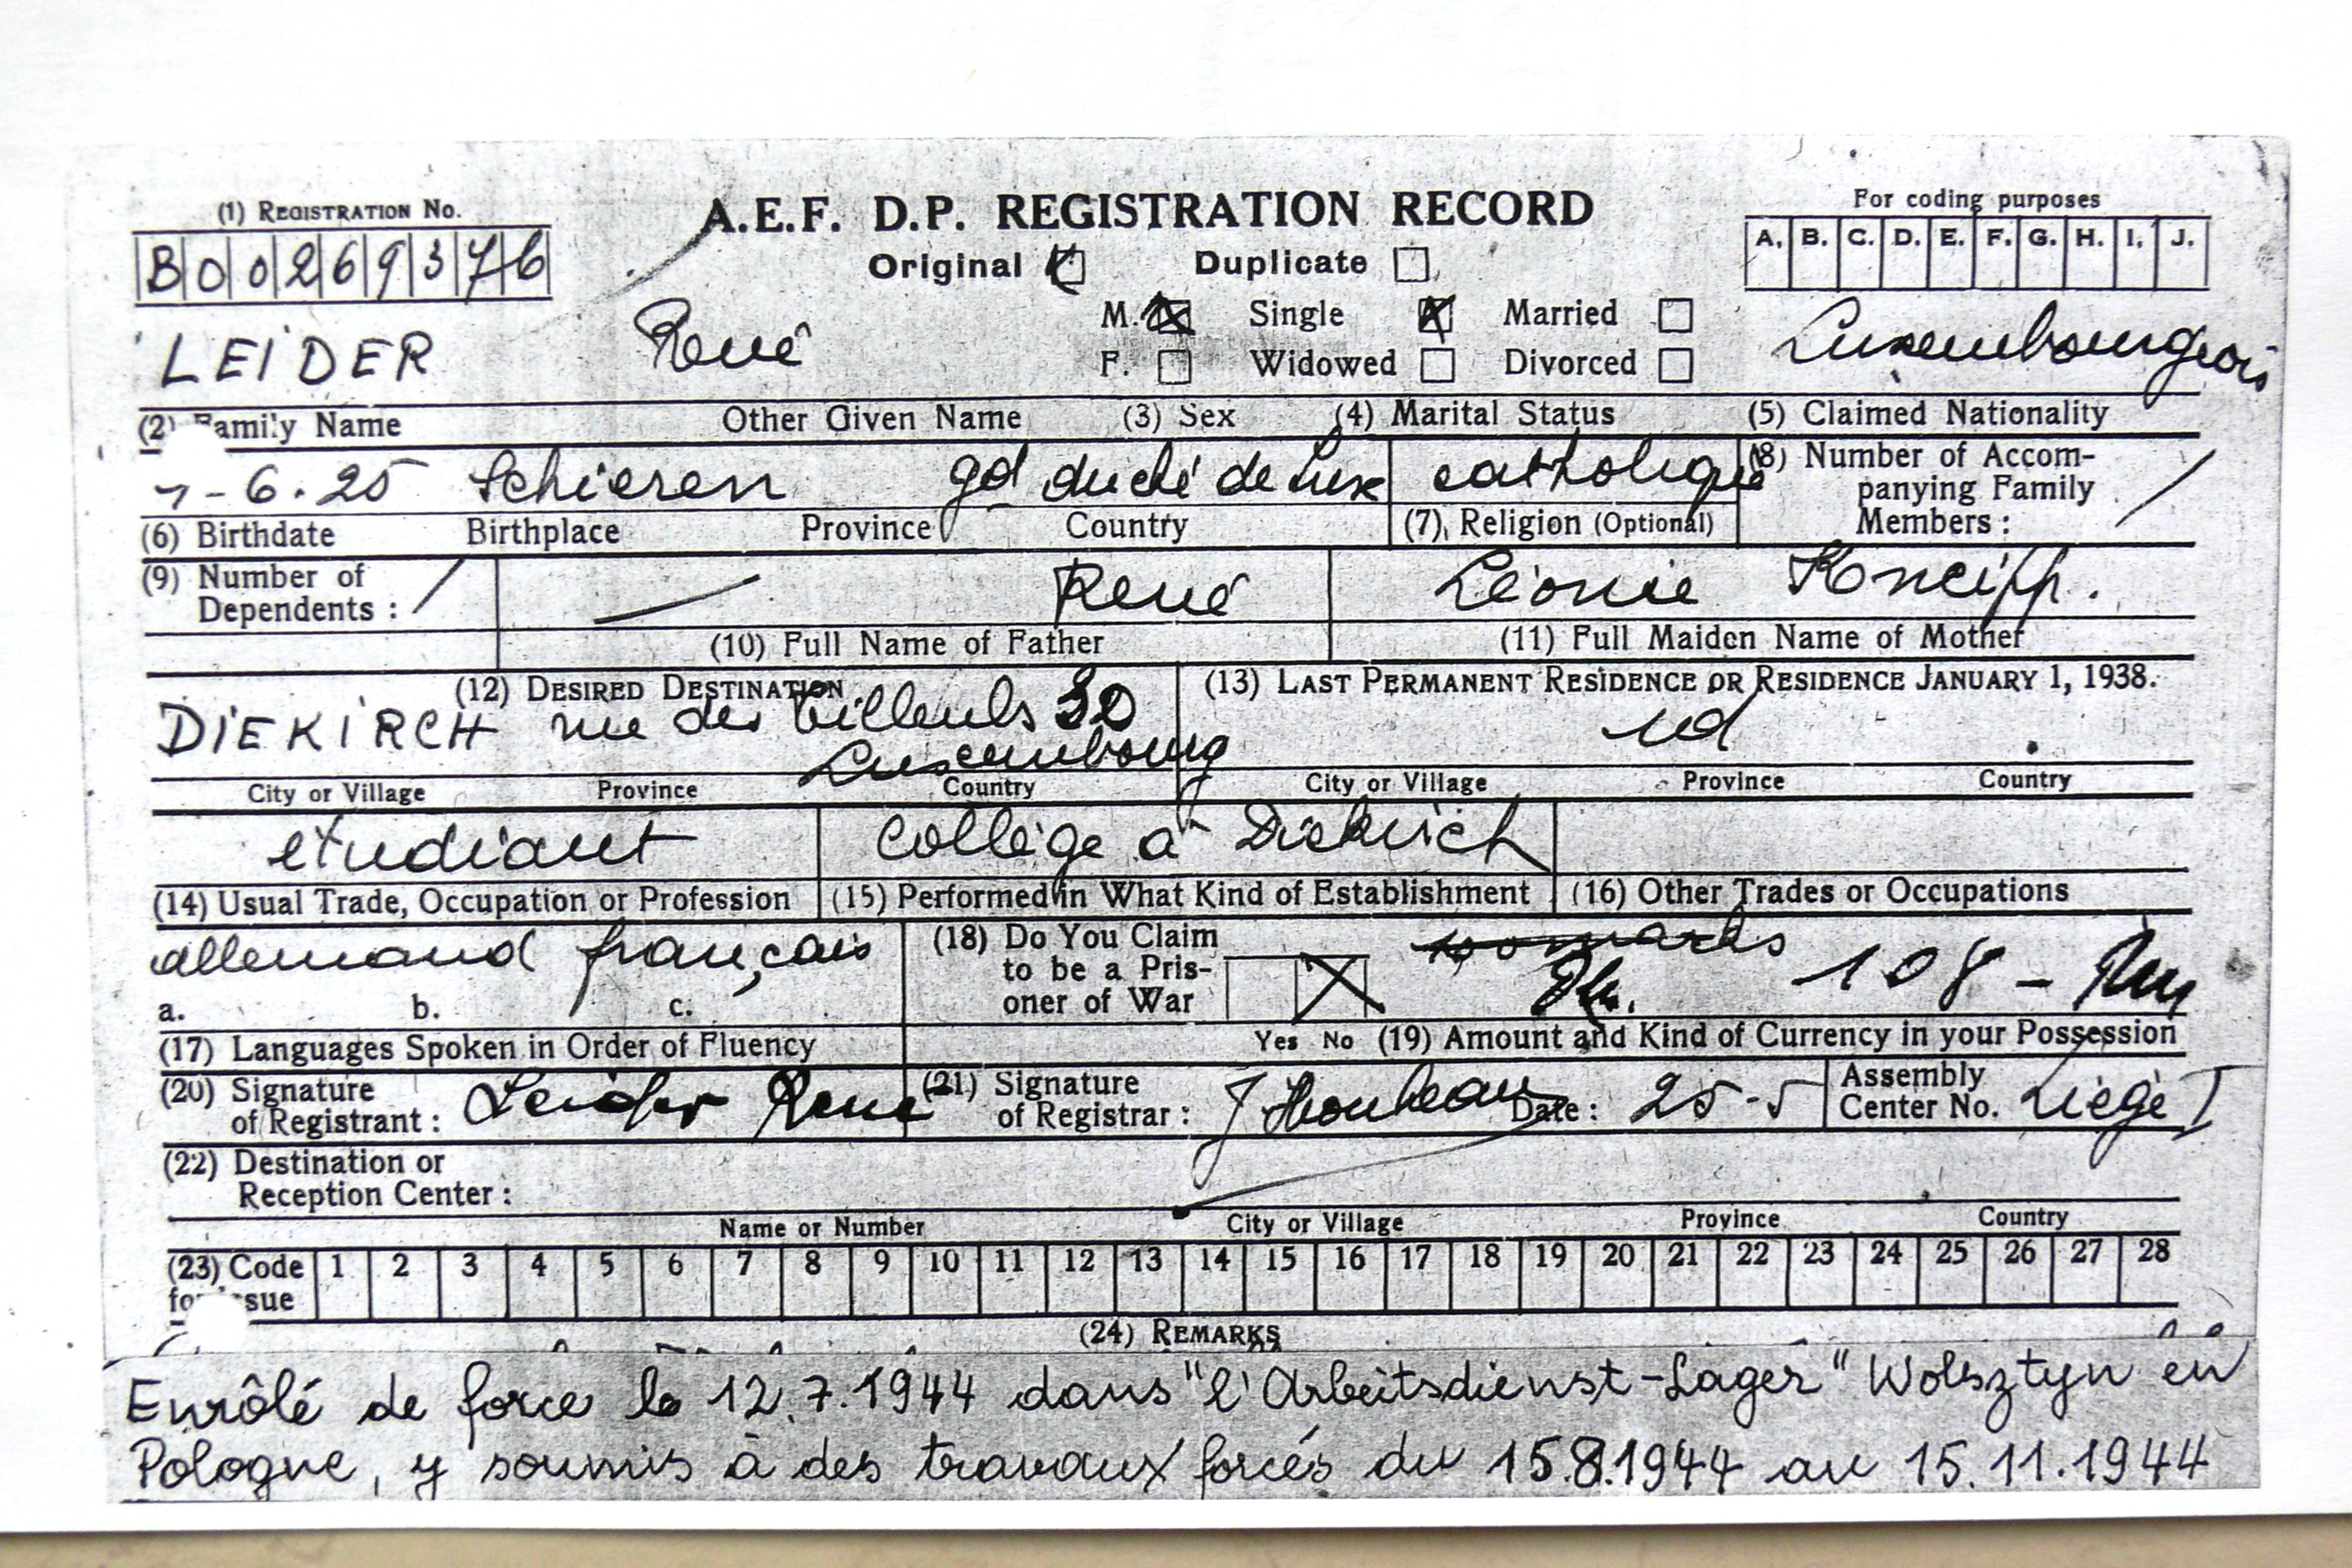 (1) REGISTRATION No.
A.E.F. D.P. REGISTRATION RECORD
For coding purposes
B 0 0 2 6 9 3 7 6
Original Duplicate
A. B. C. D. E. F. G. H. I. J.
M. Single Married
LEIDER René Luxembourgeois
F. Widowed Divorced
(2) Family Name Other Given Name (3) Sex (4) Marital Status (5) Claimed Nationality
-6.25 Schieren gd duché de Lux catholique (8) Number of Accompanying Family Members :
(6) Birthdate Birthplace Province Country (7) Religion (Optional)
(9) Number of Dependents : René Léonie Kneipp.
(10) Full Name of Father (11) Full Maiden Name of Mother
(12) DESIRED DESTINATION (13) LAST PERMANENT RESIDENCE OR RESIDENCE JANUARY 1, 1938.
DIEKIRCH rue des Tilleuls 30 id
Luxembourg
City or Village Province Country City or Village Province Country
étudiant collège à Diekirch
(14) Usual Trade, Occupation or Profession (15) Performed in What Kind of Establishment (16) Other Trades or Occupations
allemand français (18) Do You Claim to be a Prisoner of War 108 -
a. b. c.
(17) Languages Spoken in Order of Fluency Yes No (19) Amount and Kind of Currency in your Possession
(20) Signature of Registrant : Leider René (21) Signature of Registrar : Date : 25-5 Assembly Center No. Liège I
(22) Destination or
Reception Center :
Name or Number City or Village Province Country
(23) Code for Issue 1 2 3 4 5 6 7 8 9 10 11 12 13 14 15 16 17 18 19 20 21 22 23 24 25 26 27 28
(24) REMARKS
Enrôlé de force le 12.7.1944 dans "l'Arbeitsdienst-Lager" Wolsztyn en
Pologne, y soumis à des travaux forcés du 15.8.1944 au 15.11.1944